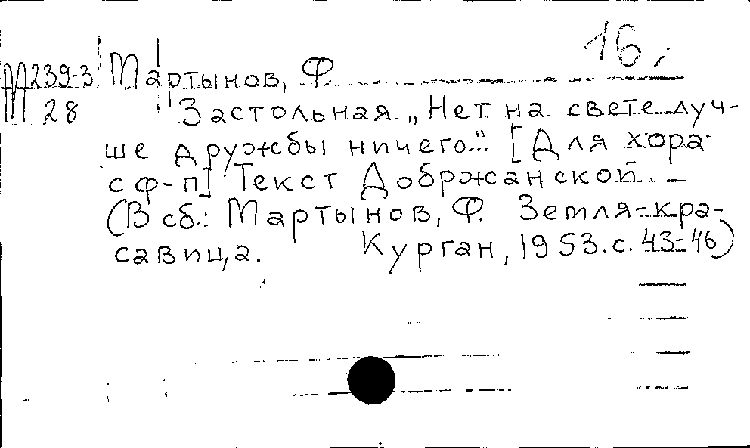 16.
М239-3 Мартынов, Ф.
28 Застольная „Нет на свете луч-
ше дружбы ничего." [Для хора
с ф-п] Текст Добржанской.
(В сб.: Мартынов, Ф. Земля-кра-
савица. Курган, 1953. с. 43-46)